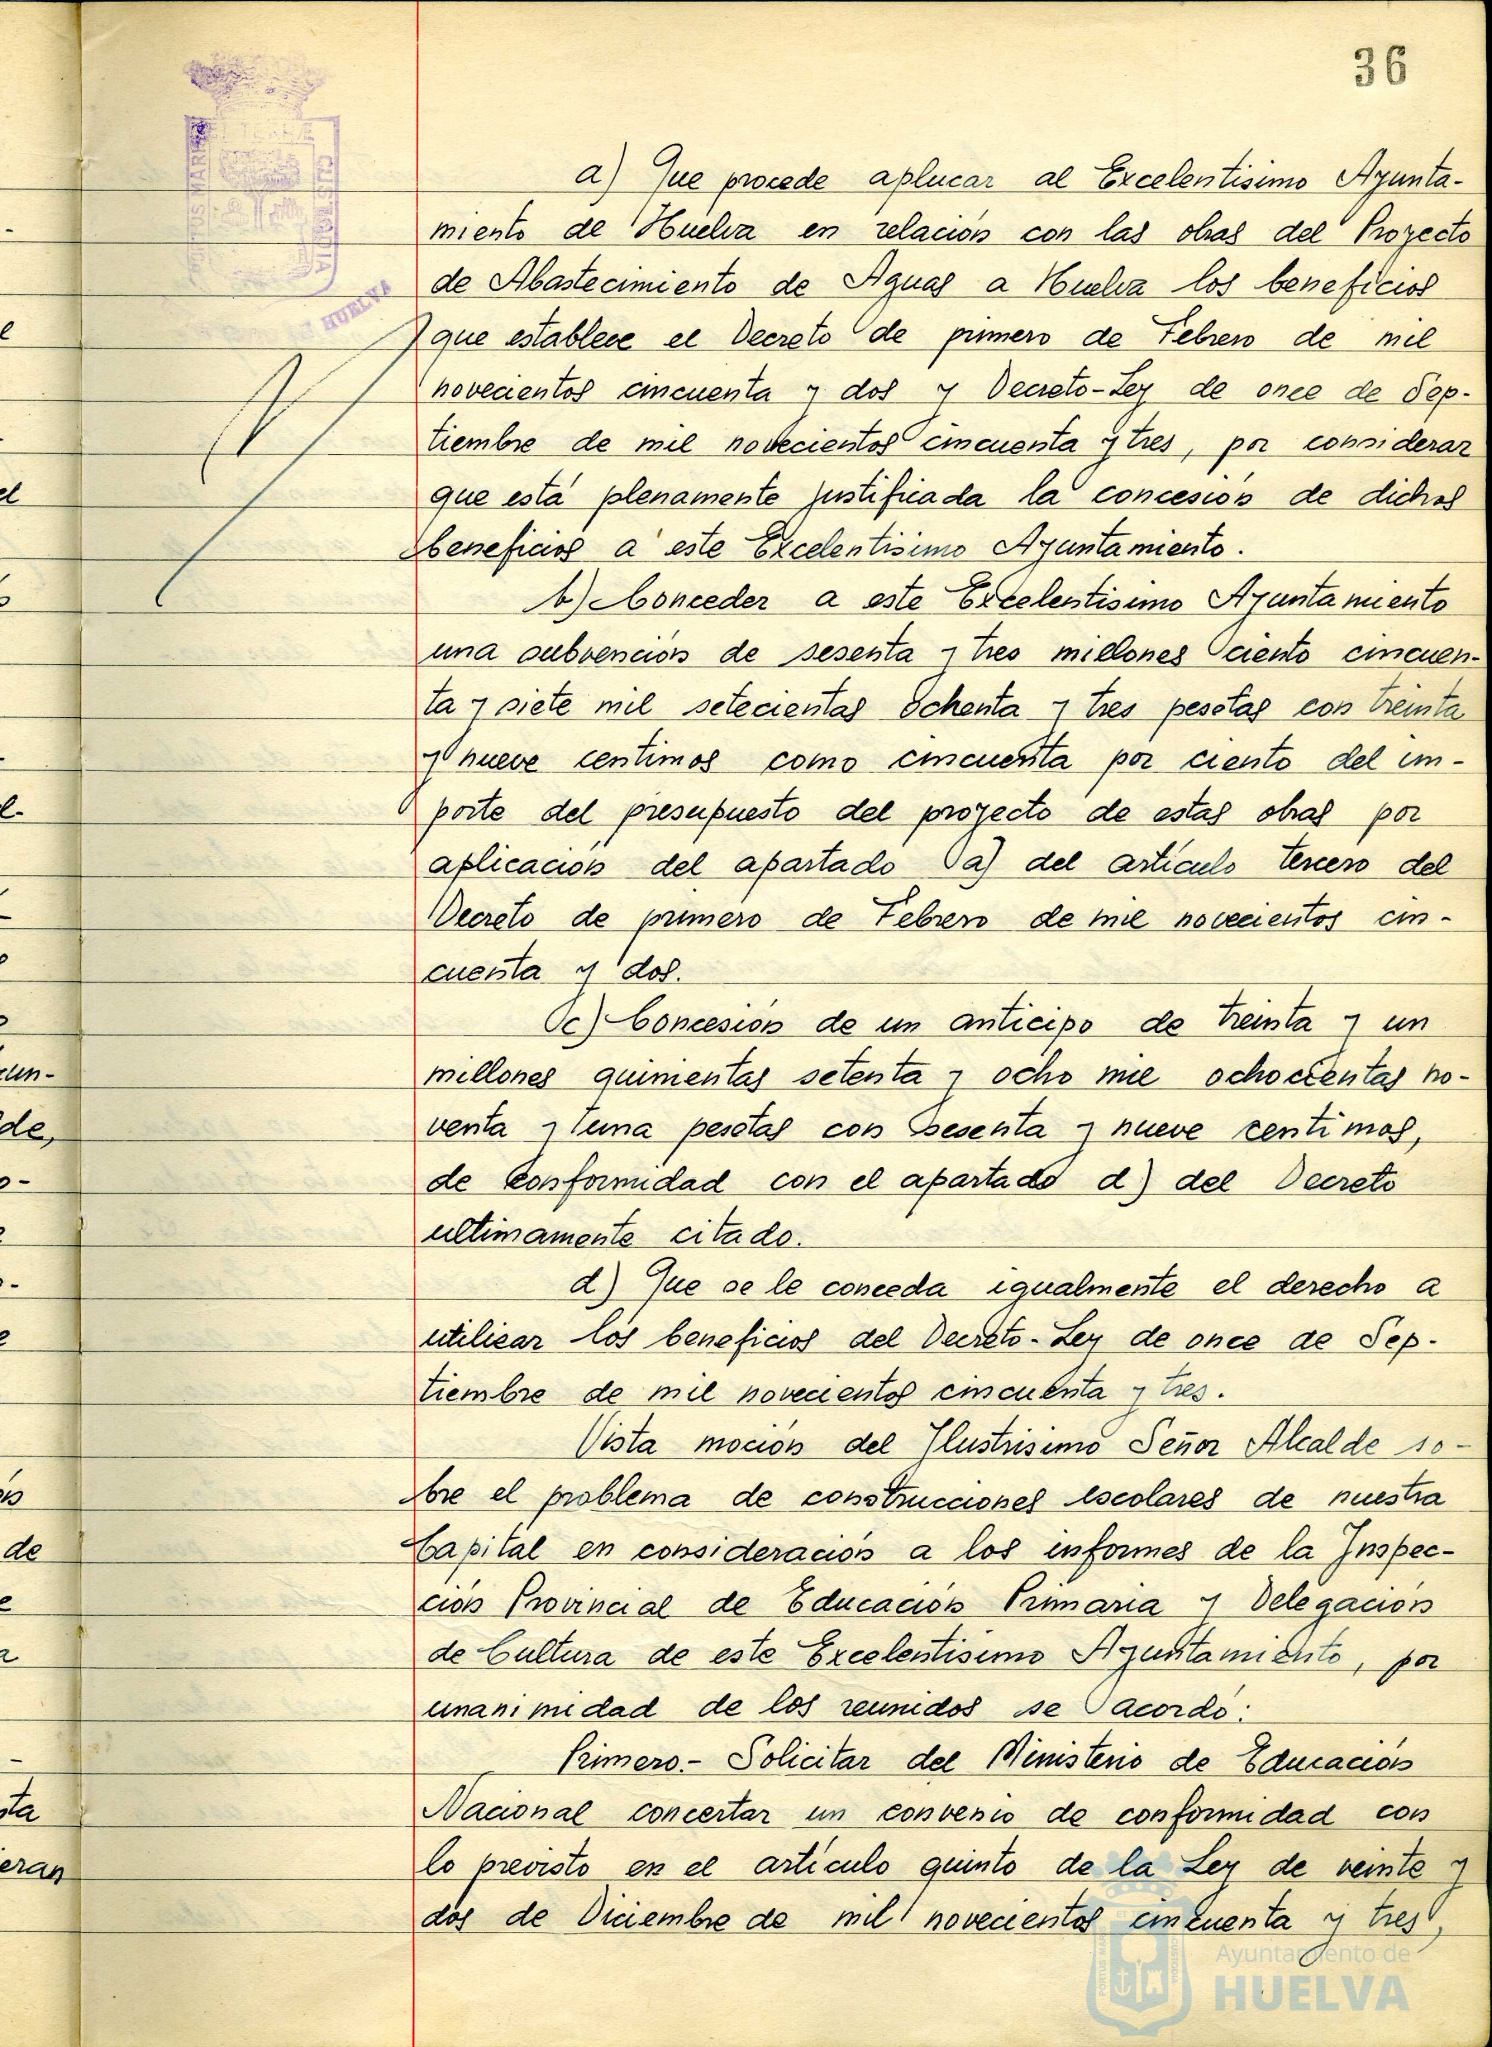 36
a) Que procede aplucar al Excelentisimo Ayunta-
miento de Huelva en relación con las obras del Proyecto
de Abastecimiento de Aguas a Huelva los beneficios
que establece el Decreto de primero de Febrero de mil
novecientos cincuenta y dos y Decreto-Ley de once de Sep-
tiembre de mil novecientos cincuenta y tres, por considerar
que está plenamente justificada la concesión de dichos
beneficios a este Excelentisimo Ayuntamiento.
b) Conceder a este Excelentisimo Ayuntamiento
una subvención de sesenta y tres millones ciento cincuen-
ta y siete mil setecientas ochenta y tres pesetas con treinta
y nueve centimos como cincuenta por ciento del im-
porte del presupuesto del proyecto de estas obras por
aplicación del apartado a) del artículo tercero del
Decreto de primero de Febrero de mil novecientos cin-
cuenta y dos.
c) Concesión de un anticipo de treinta y un
millones quinientas setenta y ocho mil ochocientas no-
venta y una pesetas con sesenta y nueve centimos,
de conformidad con el apartado d) del Decreto
ultimamente citado.
d) Que se le conceda igualmente el derecho a
utilizar los beneficios del Decreto-Ley de once de Sep-
tiembre de mil novecientos cincuenta y tres.
Vista moción del Ilustrisimo Señor Alcalde so-
bre el problema de construcciones escolares de nuestra
Capital en consideración a los informes de la Inspec-
ción Provincial de Educación Primaria y Delegación
de Cultura de este Excelentisimo Ayuntamiento, por
unanimidad de los reunidos se acordó:
Primero.- Solicitar del Ministerio de Educación
Nacional concertar un convenio de conformidad con
lo previsto en el artículo quinto de la Ley de veinte y
dos de Diciembre de mil novecientos cincuenta y tres,
PORTUS MARIS ET TERRÆ CUSTODIA
HUELVA
Ayuntamiento de
HUELVA